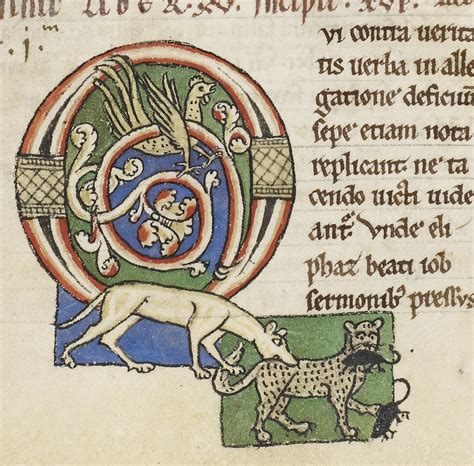 incipit. XVI.
VI contra uerita
tis uerba in alle
gatione deficiūt
sepe etiam nota
replicant. ne ta
cendo uicti uide
ant᷑ Vnde eli
phaz beati iob
sermonib; pressus